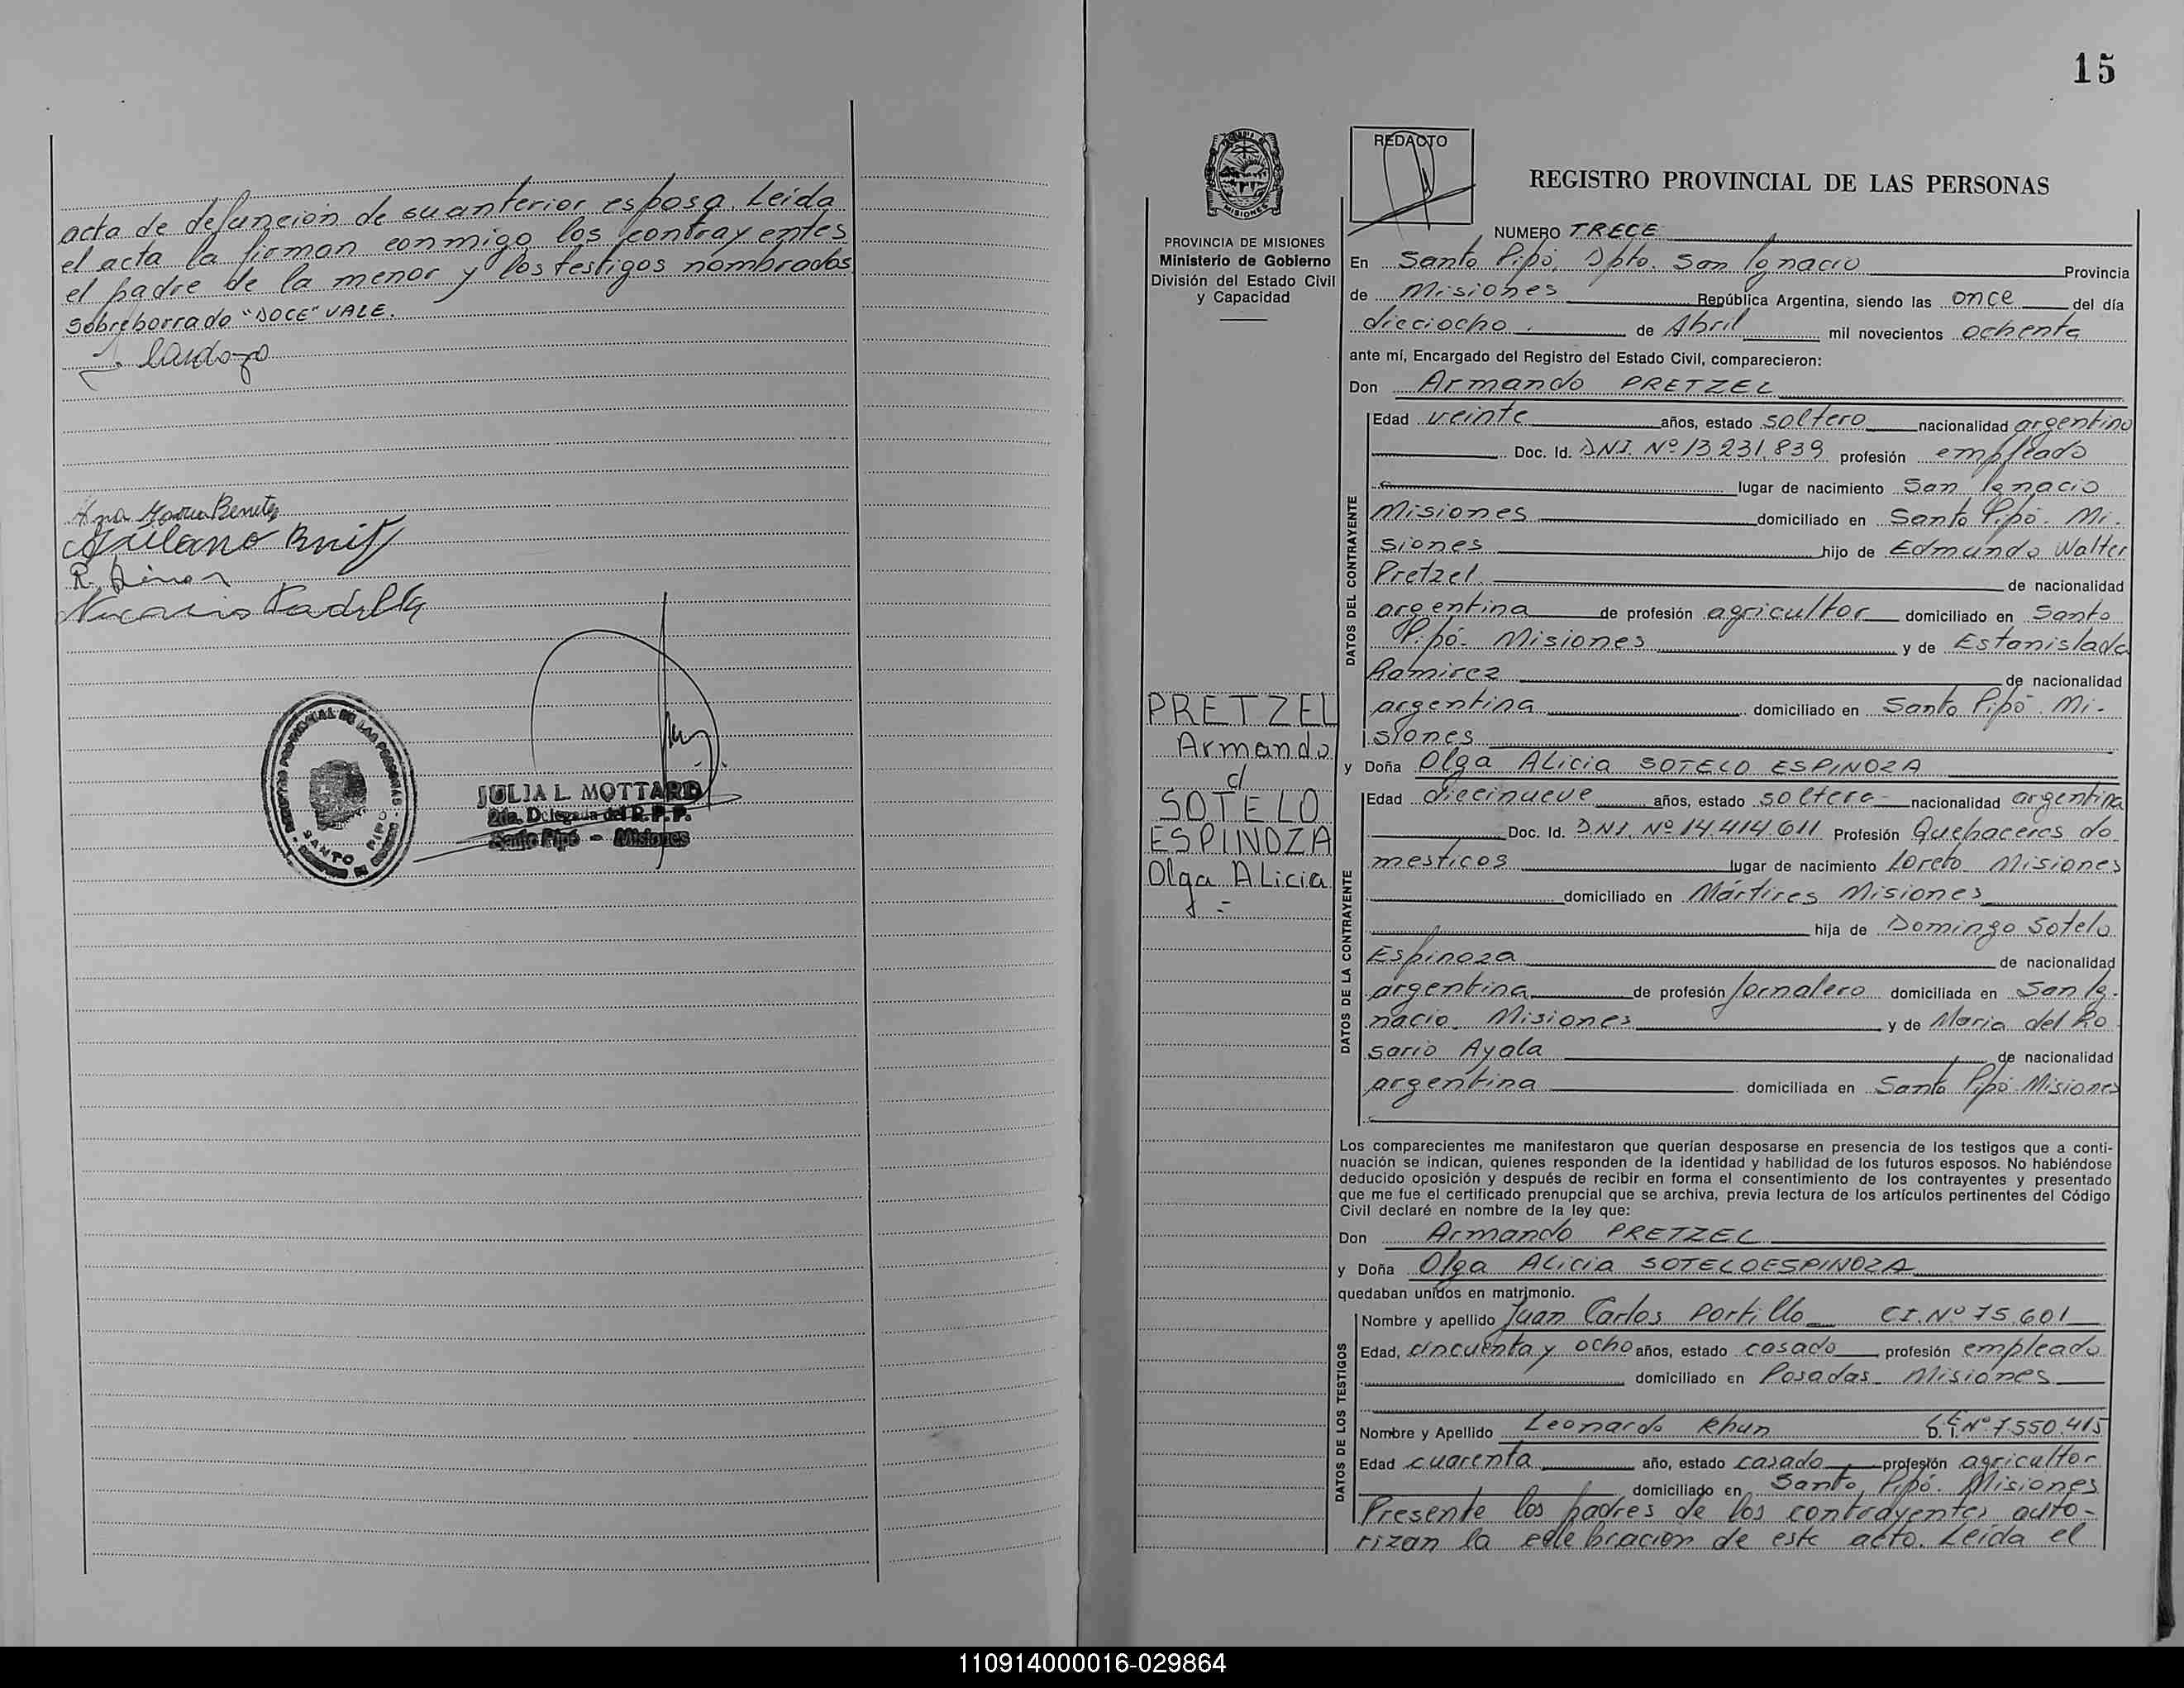 acta de defunción de su anterior esposa. Leida
el acta la firman conmigo los contrayentes
el padre de la menor y los testigos nombrados
Sobreborrado "DOCE" VALE.
Cardozo
Ana Maria Benitez
R.
Padilla
REGISTRO PROVINCIAL DE LAS PERSONAS
SANTO PIPÓ
JULIA L. MOTTARD
2da. Delegada del R.P.P.
Santo Pipó - Misiones
15
MISIONES
PROVINCIA DE MISIONES
Ministerio de Gobierno
División del Estado Civil
y Capacidad
PRETZEL
Armando
c/
SOTELO
ESPINOZA
Olga Alicia
=
REDACTO
REGISTRO PROVINCIAL DE LAS PERSONAS
NUMERO TRECE
En Santo Pipó, Dpto. San Ignacio Provincia
de Misiones República Argentina, siendo las once del día
dieciocho de Abril mil novecientos ochenta
ante mí, Encargado del Registro del Estado Civil, comparecieron:
Don Armando PRETZEL
DATOS DEL CONTRAYENTE
Edad veinte años, estado soltero nacionalidad argentino
Doc. Id. DNI. Nº 13.231.839 profesión empleado
lugar de nacimiento San Ignacio
Misiones domiciliado en Santo Pipó. Mi-
siones hijo de Edmundo Walter
Pretzel de nacionalidad
argentina de profesión agricultor domiciliado en Santo
Pipó- Misiones y de Estanislada
Ramirez de nacionalidad
argentina domiciliado en Santo Pipó. Mi-
siones
y Doña Olga Alicia SOTELO ESPINOZA
DATOS DE LA CONTRAYENTE
Edad diecinueve años, estado soltera nacionalidad argentina
Doc. Id. DNI. Nº 14.414.611 Profesión Quehaceres do-
mesticos lugar de nacimiento Loreto Misiones
domiciliado en Mártires Misiones
hija de Domingo Sotelo
Espinoza de nacionalidad
argentina de profesión Jornalero domiciliada en San Ig-
nacio. Misiones y de Maria del Ro-
sario Ayala de nacionalidad
argentina domiciliada en Santo Pipó-Misiones
Los comparecientes me manifestaron que querían desposarse en presencia de los testigos que a conti-
nuación se indican, quienes responden de la identidad y habilidad de los futuros esposos. No habiéndose
deducido oposición y después de recibir en forma el consentimiento de los contrayentes y presentado
que me fue el certificado prenupcial que se archiva, previa lectura de los artículos pertinentes del Código
Civil declaré en nombre de la ley que:
Don Armando PRETZEL
y Doña Olga Alicia SOTELO ESPINOZA
quedaban unidos en matrimonio.
DATOS DE LOS TESTIGOS
Nombre y apellido Juan Carlos Portillo CI. Nº 75.601
Edad, cincuenta y ocho años, estado casado profesión empleado
domiciliado en Posadas Misiones
Nombre y Apellido Leonardo Khun L.E. Nº 7.550.415
D. I.
Edad cuarenta año, estado casado profesión agricultor
domiciliado en Santo Pipó. Misiones
Presente los padres de los contrayentes auto-
rizan la celebracion de este acto. Leida el
110914000016-029864